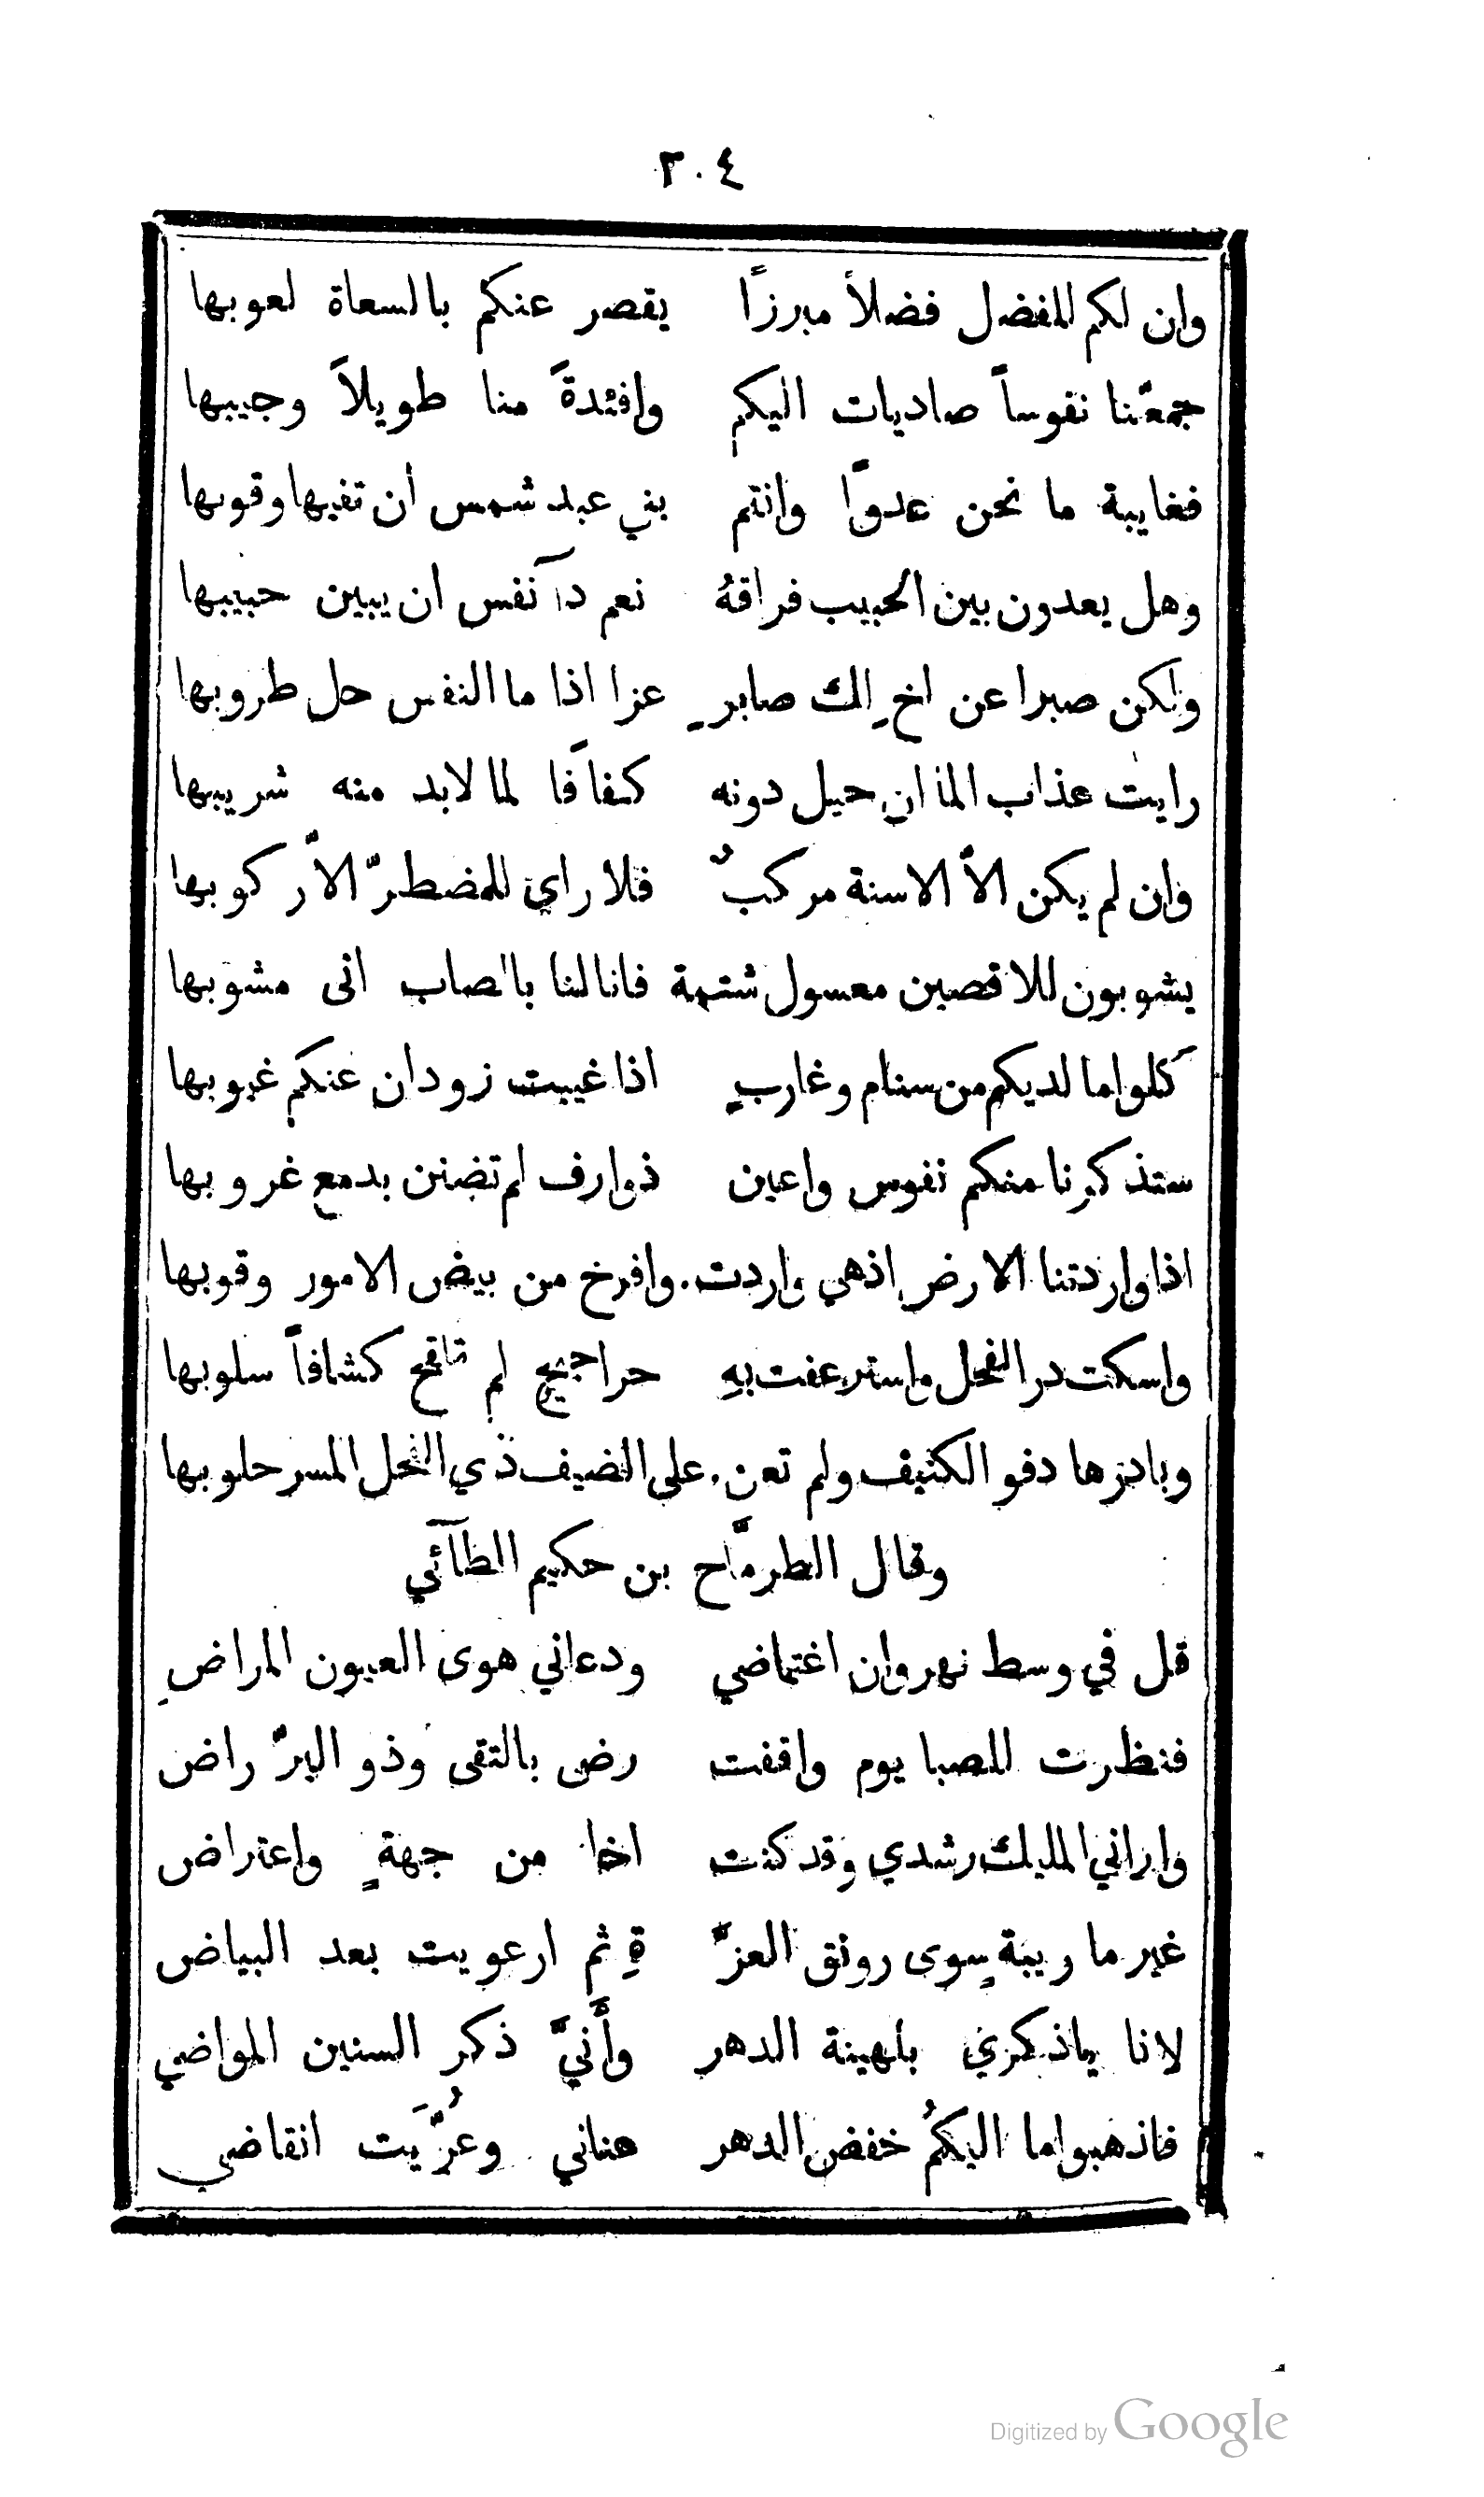 ٢٠٤
وان لكم للفضل فضلاً مبرزًا يقصر عنكم بالسعاة لعوبها
جمعْنا نفوساً صاديات اليكم وافئدةً منا طويلاً وجيبها
فغايبة ما نحن عدوًا وانتم بني عبد شمس ان تفيها وقوبها
وهل يعدون بين الحبيب فراقهُ نعم دآ نفس ان يبين حبيبها
ولكن صبرا عن اخٍ لك صابرٍ عزا اذا ما النفس حل طروبها
رايت عذاب الما ان حيل دونه كفافًا لما لا بد منه شريبها
وان لم يكن الاَّ الاسنة مركبٌ فلا راي للمضطرّ الاَّ ركوبها
يشوبون للاقصين معسول شتمة فانا لنا بالصاب انى مشوبها
كلوا ما لديكم من سنام وغاربٍ اذا غيبت زودان عنكم غيوبها
ستذكرنا منكم نفوس واعين ذوارف لم تضنن بدمع غروبها
اذا واردتنا الارض اذهي واردت. وافرخ من بيض الامور وقوبها
واسكت در الفحل واسترعفت بهِ حراجيج لم تلقح كشافاً سلوبها
وبادرها دفو الكثيف ولم تعن. على الضيف ذي الفحل المسر حلوبها
وقال الطرمَّاح بن حكيم الطآئي
قل في وسط نهروان اغتماضي ودعاني هوى العيون المراضِ
فنظرت للصبا يوم واقفت رض بالتقى وذو البرّ راض
واراني المليك رشدي وقد كنت اخا من جهةٍ واعتراض
غير ما ريبةٍ سوى رونق العزَّ ةِ ثم ارعويت بعد البياض
لانا ياذكري بلهينة الدهر وأَنيَّ ذكر السنين المواضي
فاذهبوا ما اليكمُ خفض الدهر هناني وعُرّيَت انقاضي
Digitized by Google